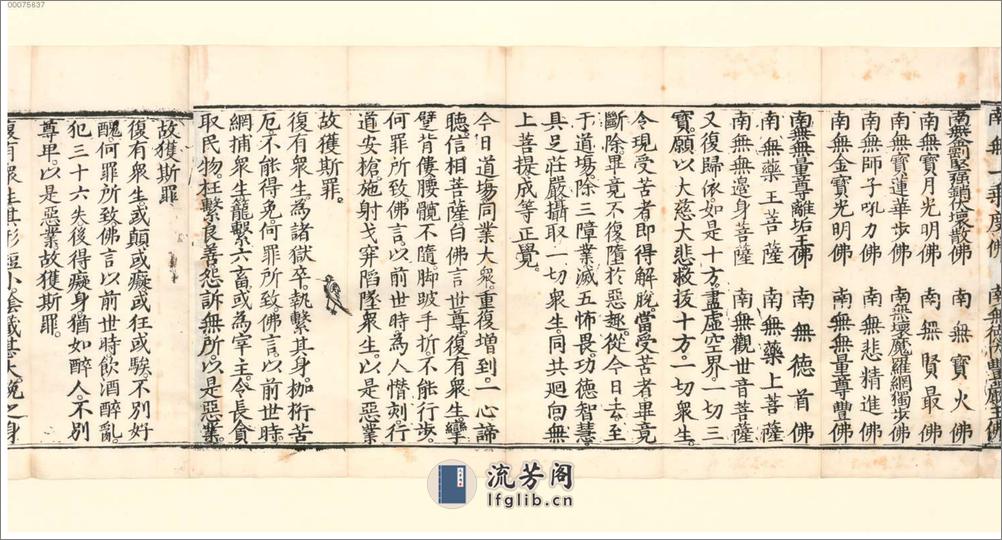 00075637
南無寶火佛
南無寶月光明佛　南無賢最佛
南無寶蓮華步佛　南無壞魔羅網獨步佛
南無師子吼力佛　南無悲精進佛
南無金寶光明佛　南無無量尊豐佛
南無無量尊離垢王佛　南無德首佛
南無藥王菩薩　南無藥上菩薩
南無無邊身菩薩　南無觀世音菩薩
又復歸依。如是十方。盡虛空界。一切三
寶。願以大慈大悲。救拔十方。一切衆生。
令現受苦者。即得解脫。當受苦者。畢竟
斷除。畢竟不復墮於惡趣。從今日去。至
于道場。除三障業。滅五怖畏。功德智慧。
具足莊嚴。攝取一切衆生。同共迴向無
上菩提。成等正覺。
今日道場同業大衆。重復增到。一心諦
聽。信相菩薩白佛言。世尊。復有衆生。攣
躄背僂。腰髖不隨。脚跛手折。不能行步。
何罪所致。佛言。以前世時。為人憯刻。行
道安槍。施射戈穽。陷墜衆生。以是惡業
故獲斯罪。
復有衆生。為諸獄卒。執繫其身。枷桁苦
厄。不能得免。何罪所致。佛言。以前世時
網捕衆生。籠繫六畜。或為宰主。令長貪
取民物。枉繫良善。怨訴無所。以是惡業。
故獲斯罪
復有衆生。或顛或癡。或狂或騃。不別好
醜。何罪所致。佛言。以前世時。飲酒醉亂。
犯三十六失。後得癡身。猶如醉人。不別
尊卑。以是惡業。故獲斯罪。
流芳阁
lfglib.cn